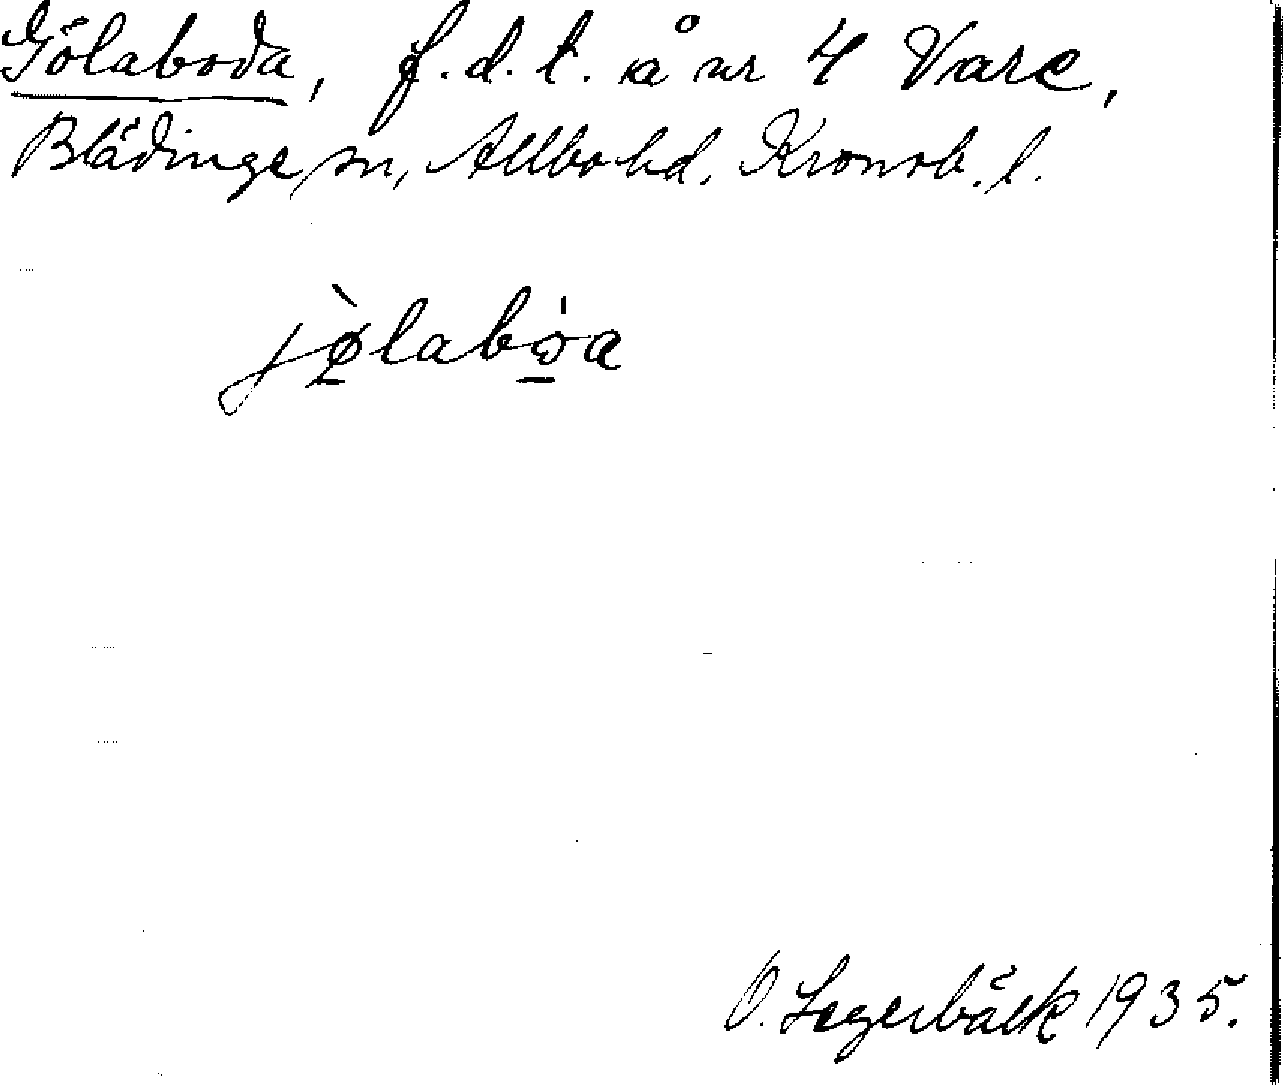 Gölaboda, f.d.t. å nr 4 Vare,
Blädinge sn, Allbo hd. Kronob. l.
jø̀labòa
O. Lagerbäck 1935.